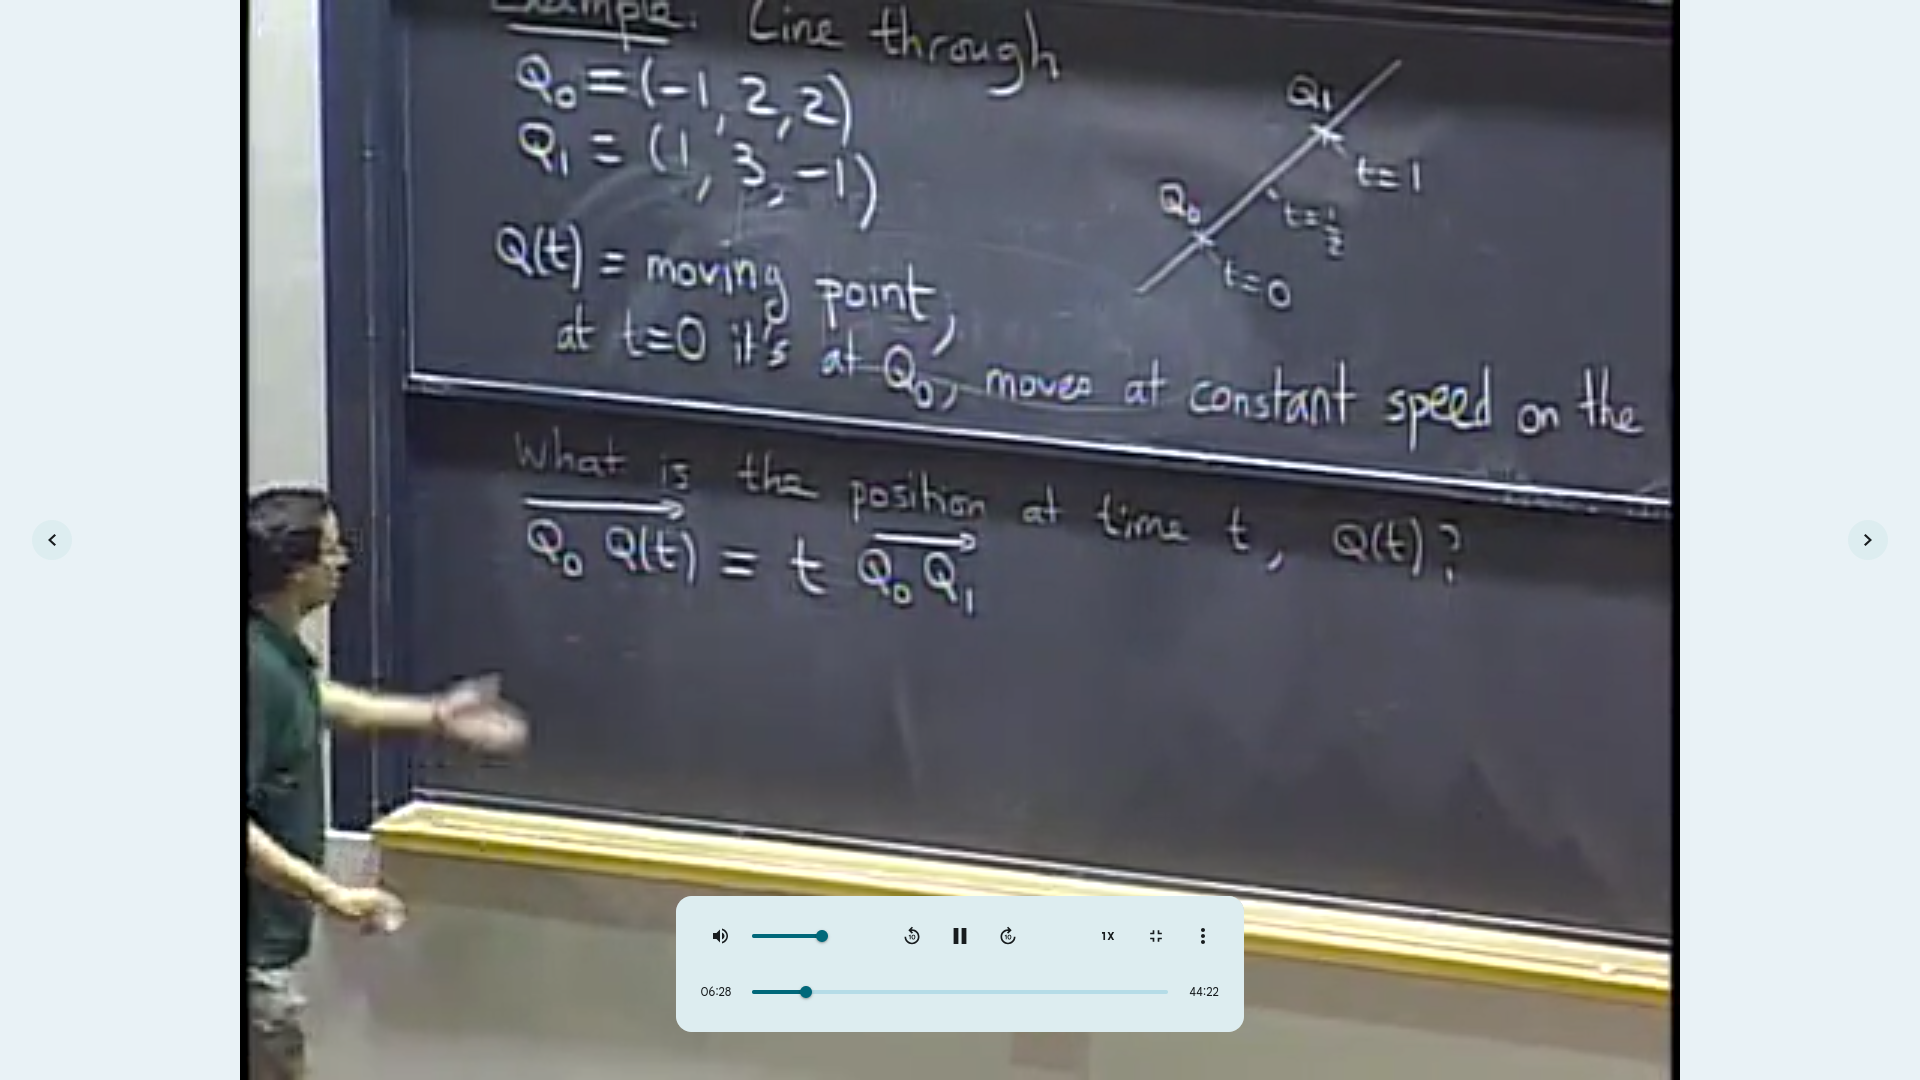 Example: Line through
Q₀ = (-1, 2, 2)
Q₁ = (1, 3, -1)
Q(t) = moving point,
at t=0 it's at Q₀, moves at constant speed on the
Q₁
t=1
t=½
Q₀
t=0
What is the position at time t, Q(t)?
Q₀Q(t) = t Q₀Q₁
10
10
1X
06:28
44:22